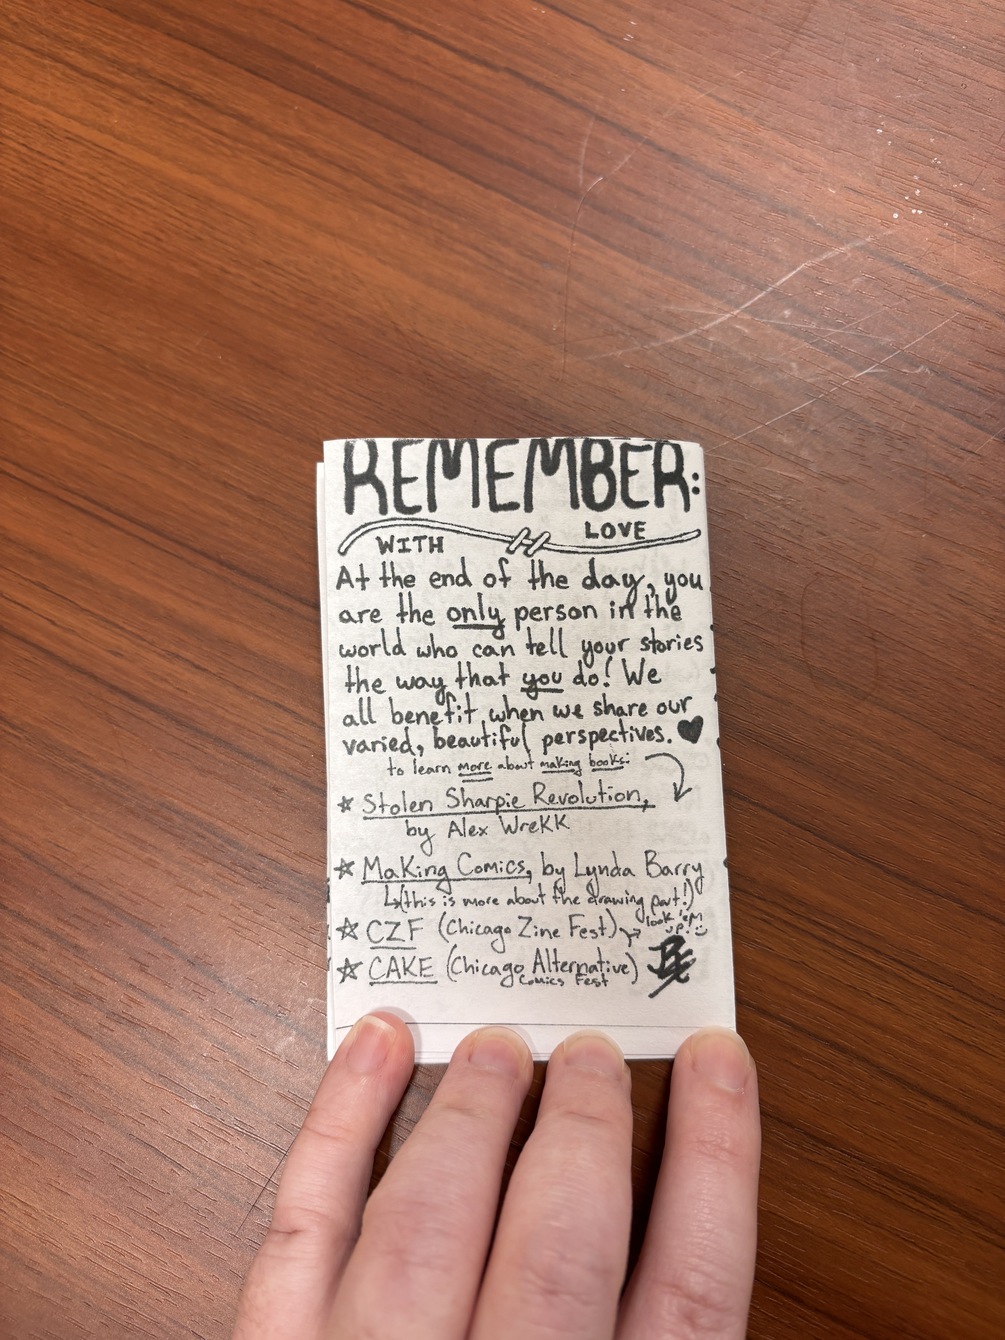 REMEMBER:
WITH LOVE
At the end of the day, you
are the only person in the
world who can tell your stories
the way that you do! We
all benefit when we share our
varied, beautiful perspectives. ♥
to learn more about making books:
☆ Stolen Sharpie Revolution,
by Alex WreKK
☆ Making Comics, by Lynda Barry
↳(this is more about the drawing part!)
☆ CZF (Chicago Zine Fest) → look 'em up! :)
☆ CAKE (Chicago Alternative Comics Fest)